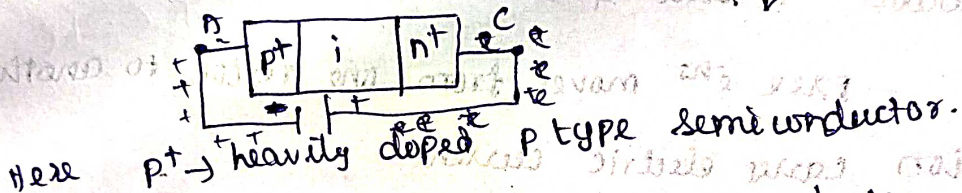 A C
p+ i n+
Here p+ → heavily doped p type semiconductor.